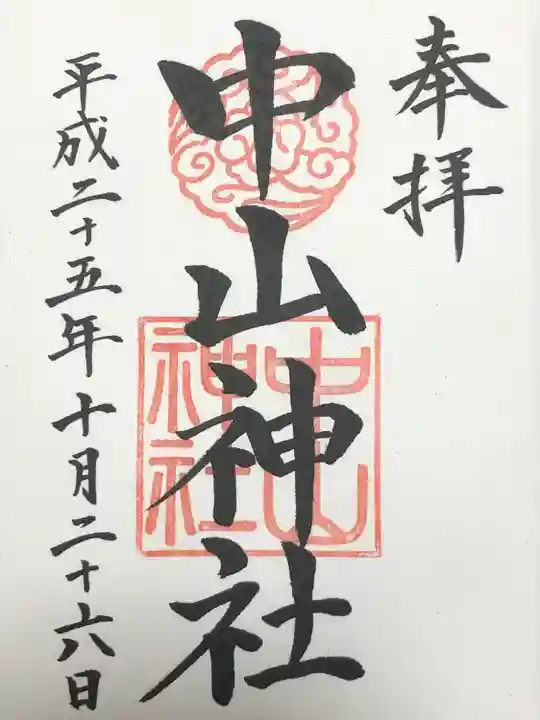 奉拝
中山神社
中山神社
平成二十五年十月二十六日